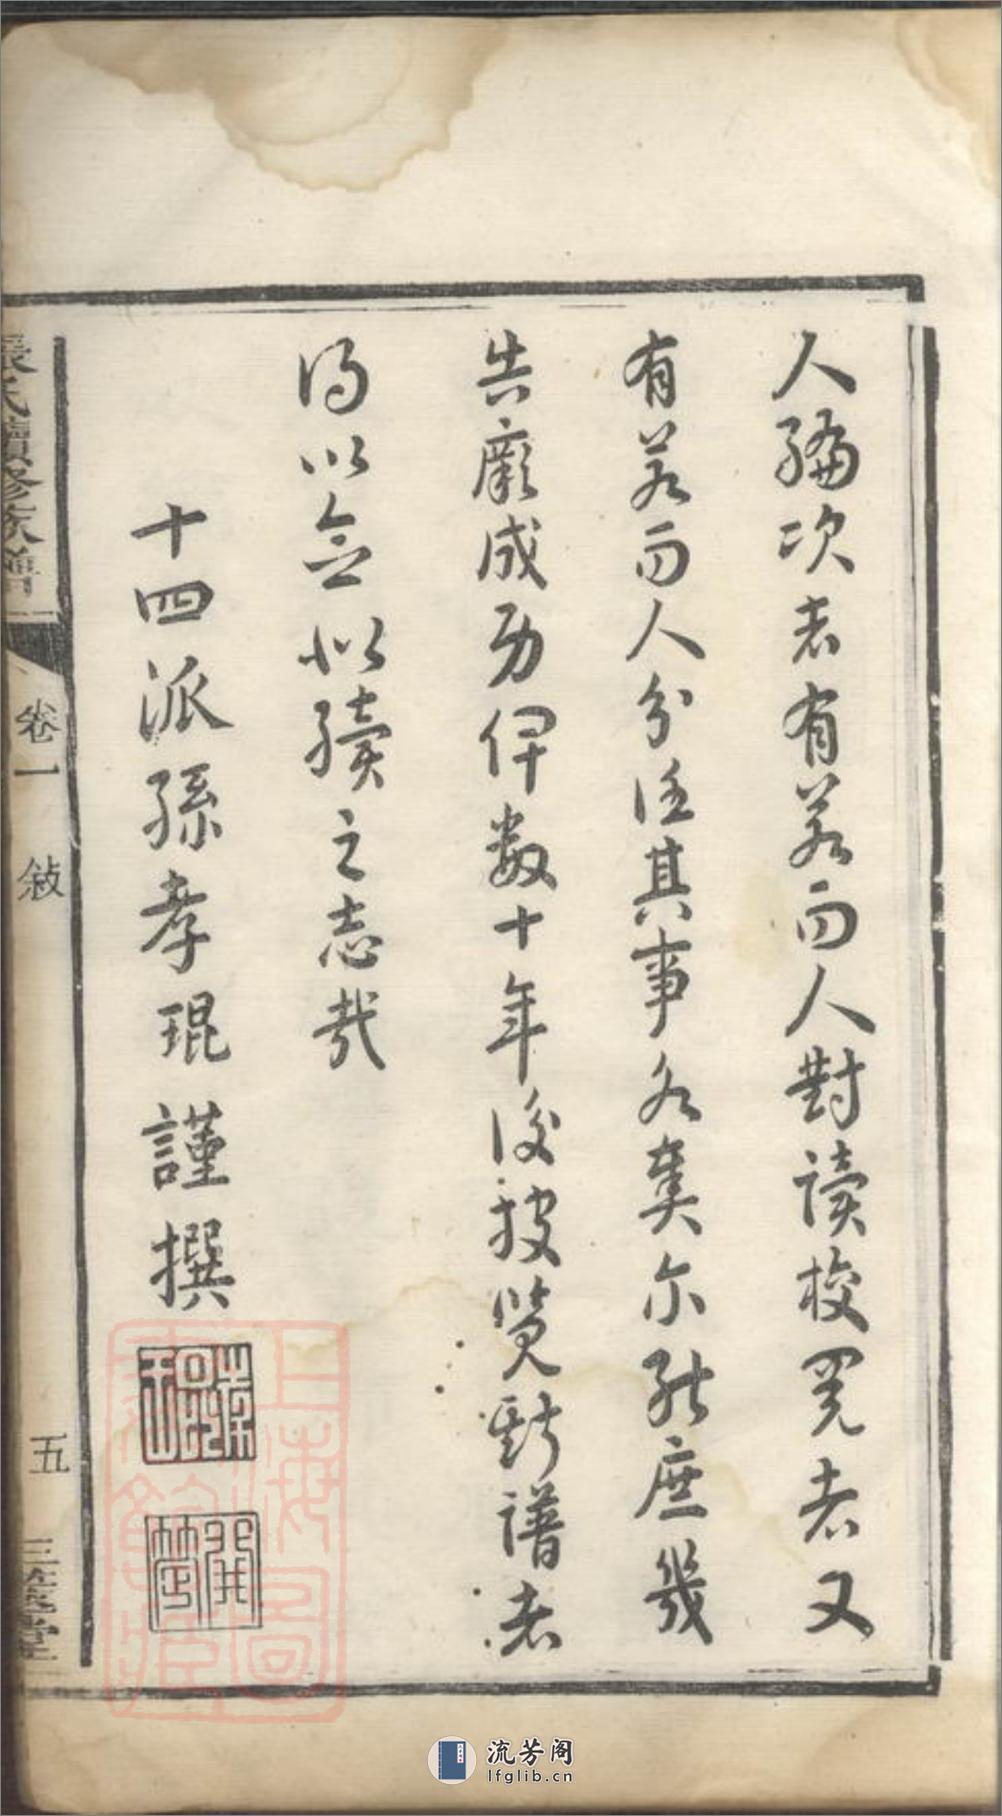 人編次者有若而人對讀校字者又
有若而人分任其事各奏尔能庶幾
告厥成功俾數十年後披覽斯譜者
得以念似續之志哉
十四派孫孝琨謹撰
張氏續修族譜
卷一 敍
五
上海圖書館藏
流芳阁
lfglib.cn